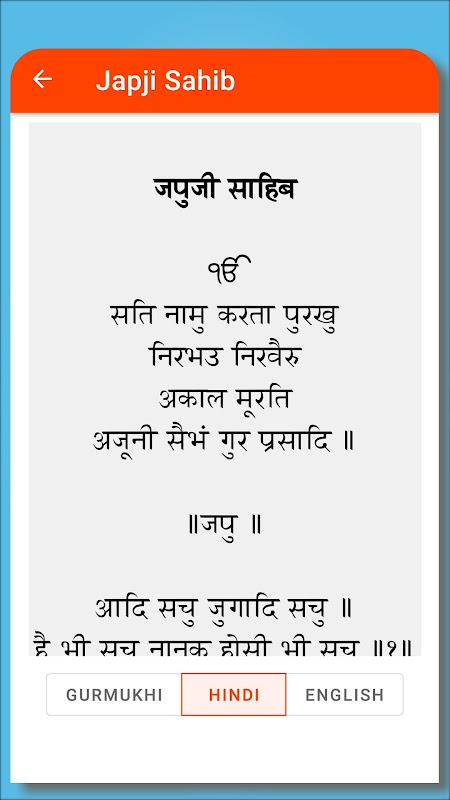 Japji Sahib
जपुजी साहिब
ੴ
सति नामु करता पुरखु
निरभउ निरवैरु
अकाल मूरति
अजूनी सैभं गुर प्रसादि ॥
॥जपु ॥
आदि सचु जुगादि सचु ॥
है भी सचु नानक होसी भी सचु ॥१॥
GURMUKHI HINDI ENGLISH